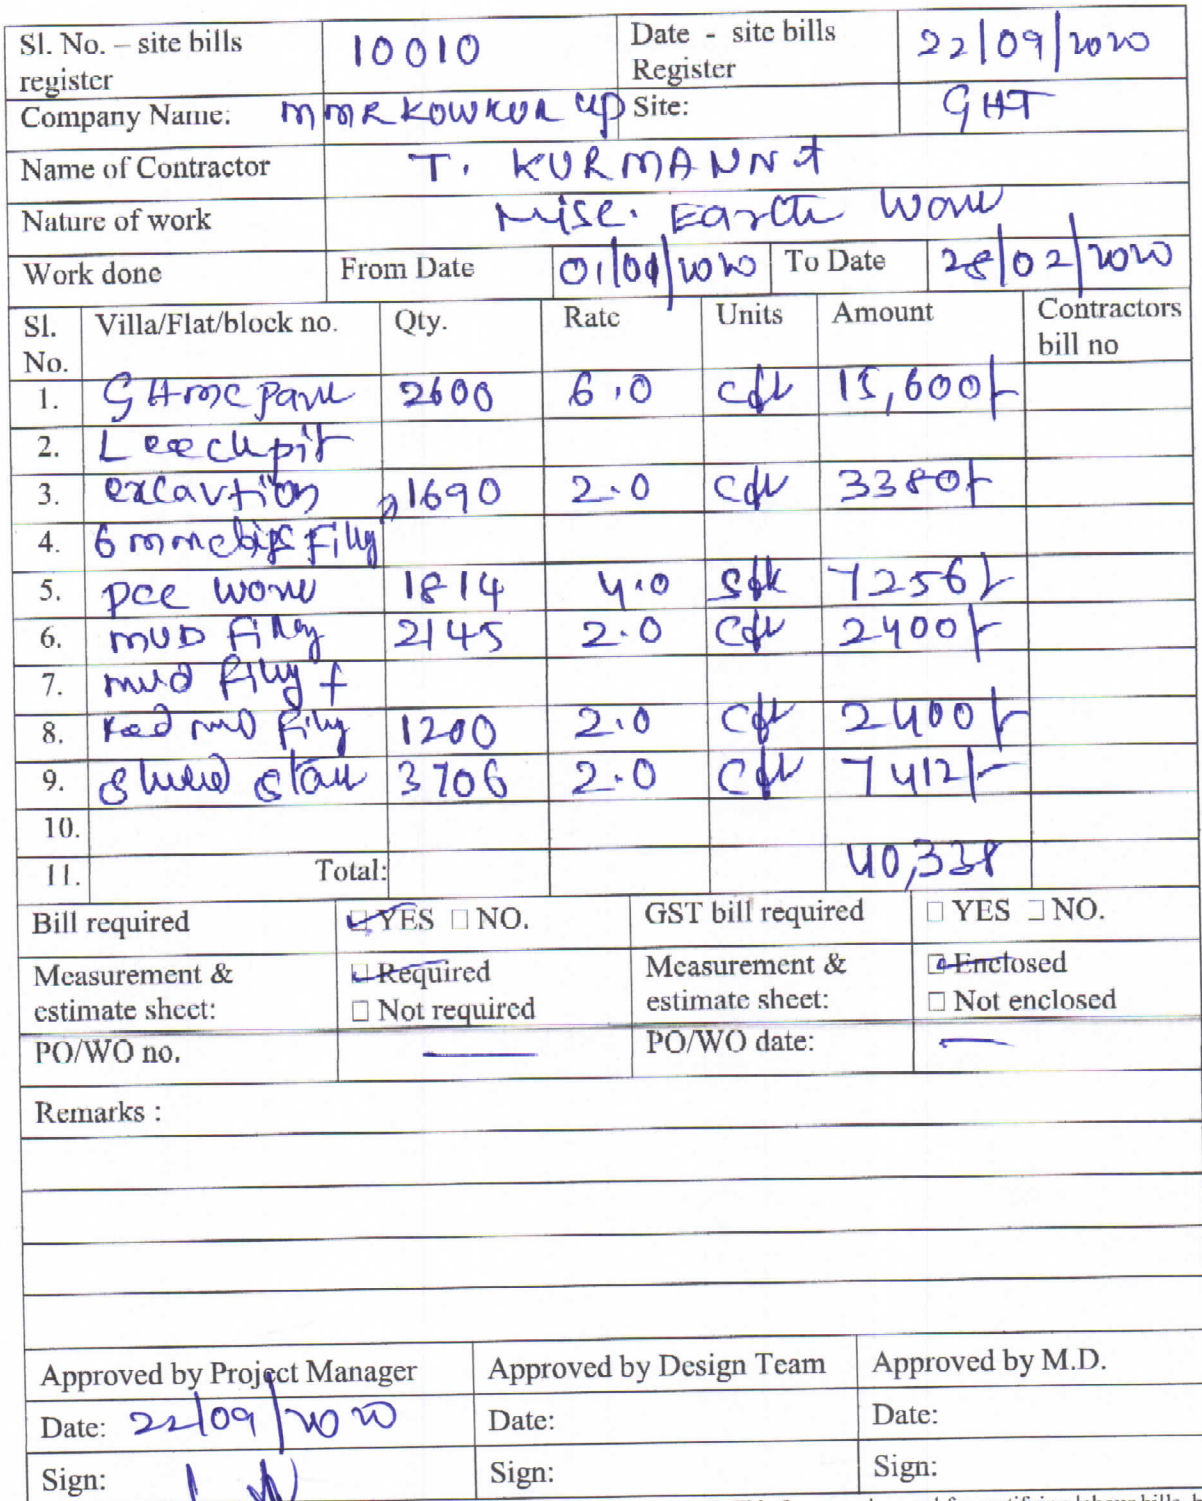 Sl. No. – site bills register 10010 Date - site bills Register 22/09/2020
Company Name: MMR KOWKUR LLP Site: GHT
Name of Contractor T. KURMANNA
Nature of work Misc. Earth Work
Work done From Date 01/01/2020 To Date 28/02/2020
Sl. No. Villa/Flat/block no. Qty. Rate Units Amount Contractors bill no
1. GHMC 2600 6.0 cft 15,600/-
2. Leechpit
3. excavtion 1690 2.0 cft 3380/-
4. 6mm chips Fillg
5. pcc work 1814 4.0 sft 7256/-
6. MUD Fillg 2145 2.0 cft 2400/-
7. mud fillg +
8. Red mud fillg 1200 2.0 cft 2400/-
9. 3706 2.0 cft 7412/-
10.
11. Total: 40,338
Bill required ☑ YES □ NO. GST bill required □ YES □ NO.
Measurement & estimate sheet: ☑ Required □ Not required Measurement & estimate sheet: ☑ Enclosed □ Not enclosed
PO/WO no. — PO/WO date: —
Remarks :
Approved by Project Manager Approved by Design Team Approved by M.D.
Date: 22/09/2020 Date: Date:
Sign: Sign: Sign: